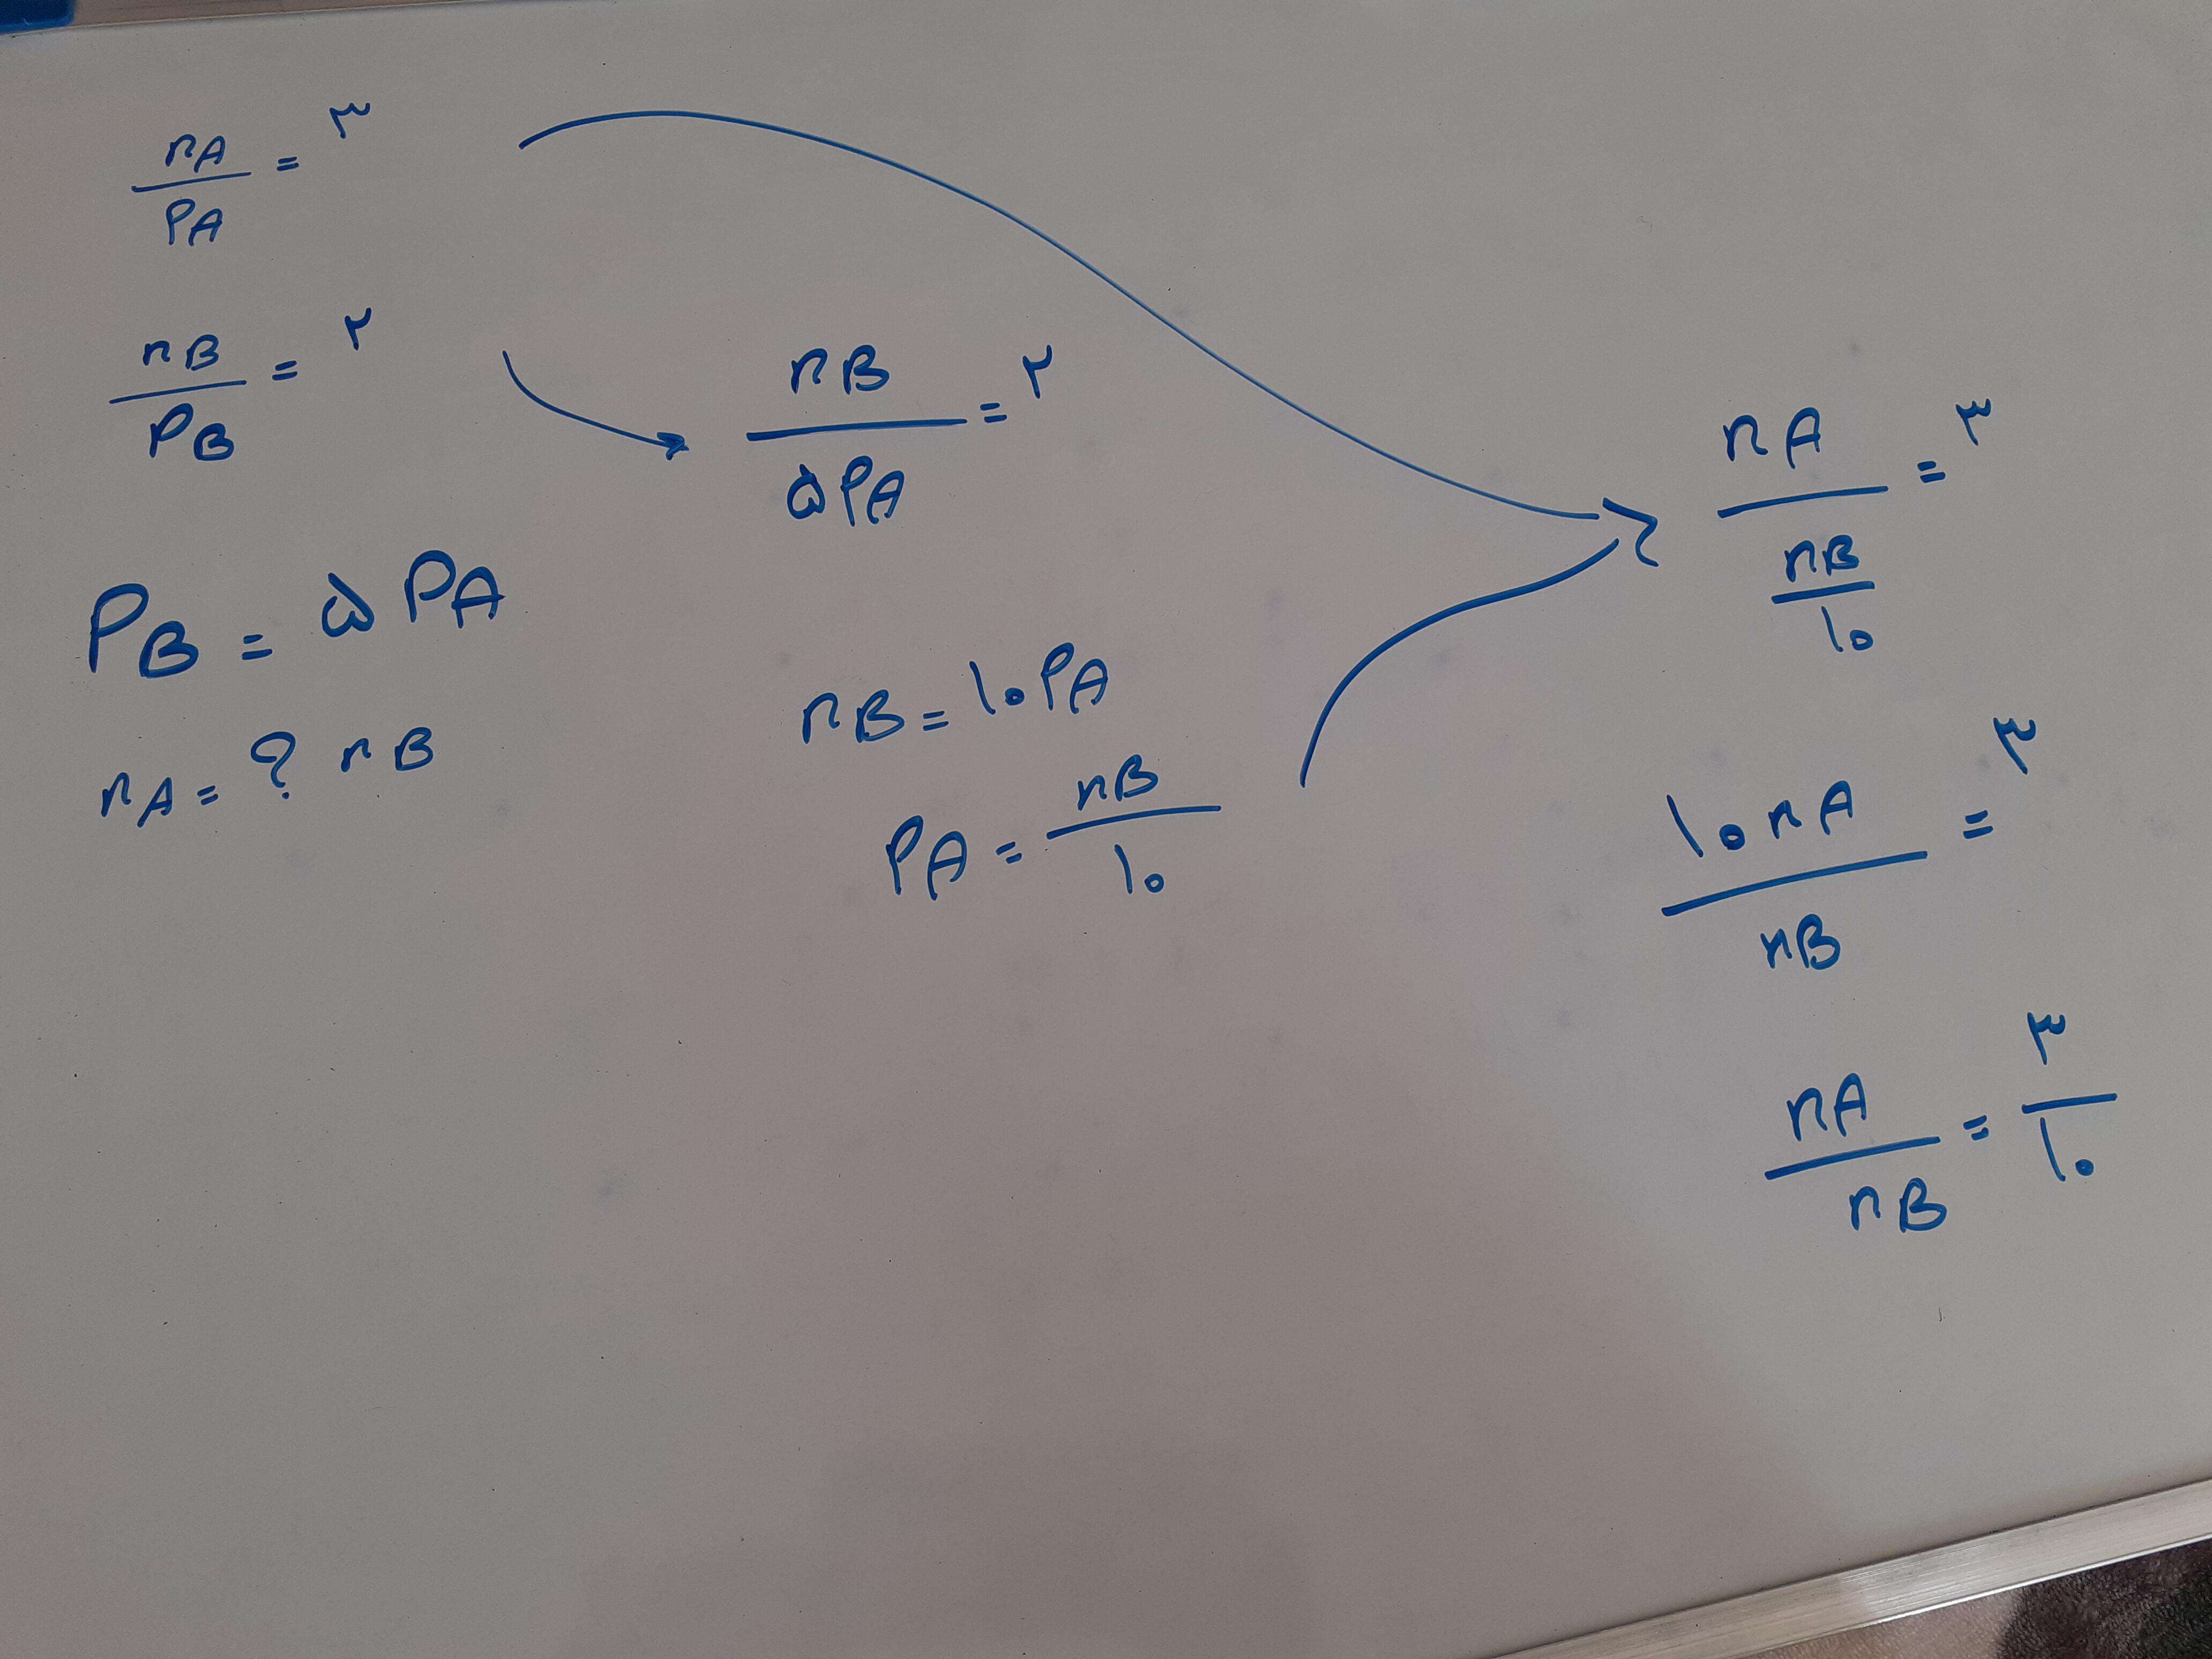 nA/PA = ۳
nB/PB = ۲
PB = ۵ PA
nA = ? nB
nB/۵PA = ۲
nB = ۱۰ PA
PA = nB/۱۰
nA/(nB/۱۰) = ۳
۱۰nA/nB = ۳
nA/nB = ۳/۱۰